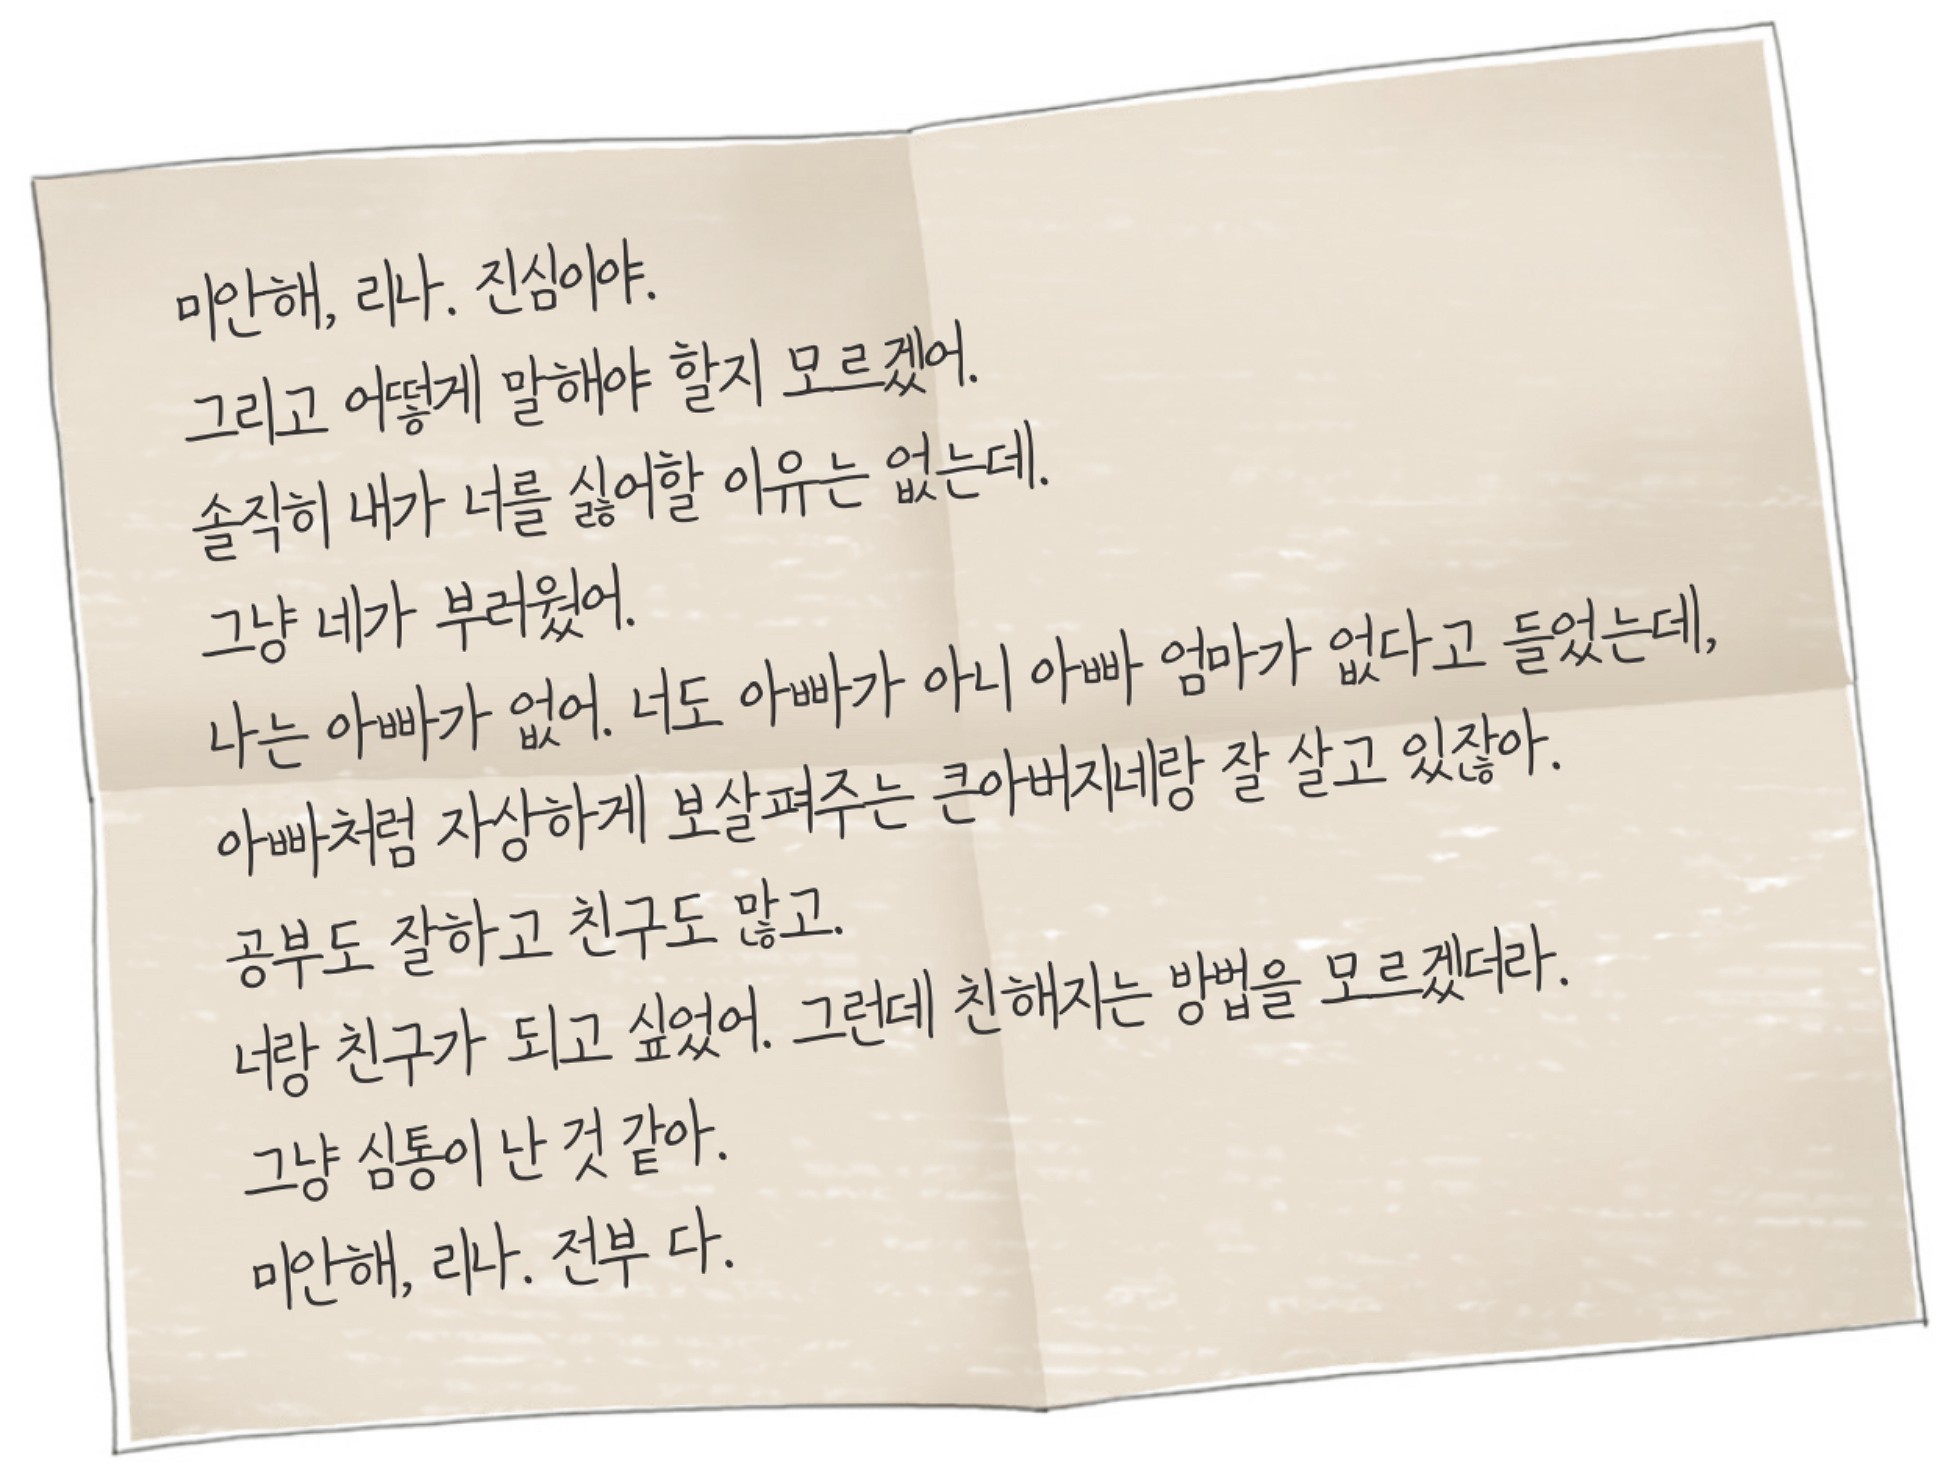 미안해, 리나. 진심이야.
그리고 어떻게 말해야 할지 모르겠어.
솔직히 내가 너를 싫어할 이유는 없는데.
그냥 네가 부러웠어.
나는 아빠가 없어. 너도 아빠가 아니 아빠 엄마가 없다고 들었는데,
아빠처럼 자상하게 보살펴주는 큰아버지네랑 잘 살고 있잖아.
공부도 잘하고 친구도 많고.
너랑 친구가 되고 싶었어. 그런데 친해지는 방법을 모르겠더라.
그냥 심통이 난 것 같아.
미안해, 리나. 전부 다.